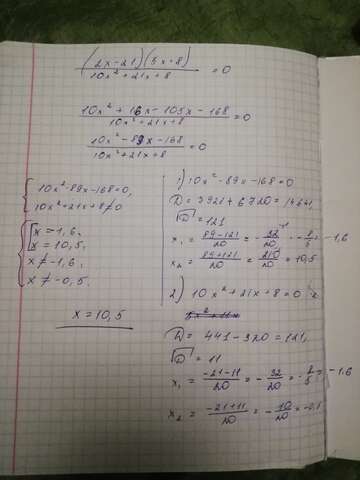 (2x-21)(5x+8)/10x²+21x+8 = 0
10x²+16x-105x-168/10x²+21x+8 = 0
10x²-89x-168/10x²+21x+8 = 0
10x²-89x-168=0,
10x²+21x+8≠0
x=1,6,
x=10,5,
x≠-1,6,
x≠-0,5.
x=10,5
1) 10x²-89x-168=0
D=7921+6720=14641
√D=121
x₁=89-121/20=-32/20=-8/5=-1,6
x₂=89+121/20=210/20=10,5
2) 10x²+21x+8=0
D=441-320=121,
√D=11
x₁=-21-11/20=-32/20=-8/5=-1,6
x₂=-21+11/20=-10/20=-0,5